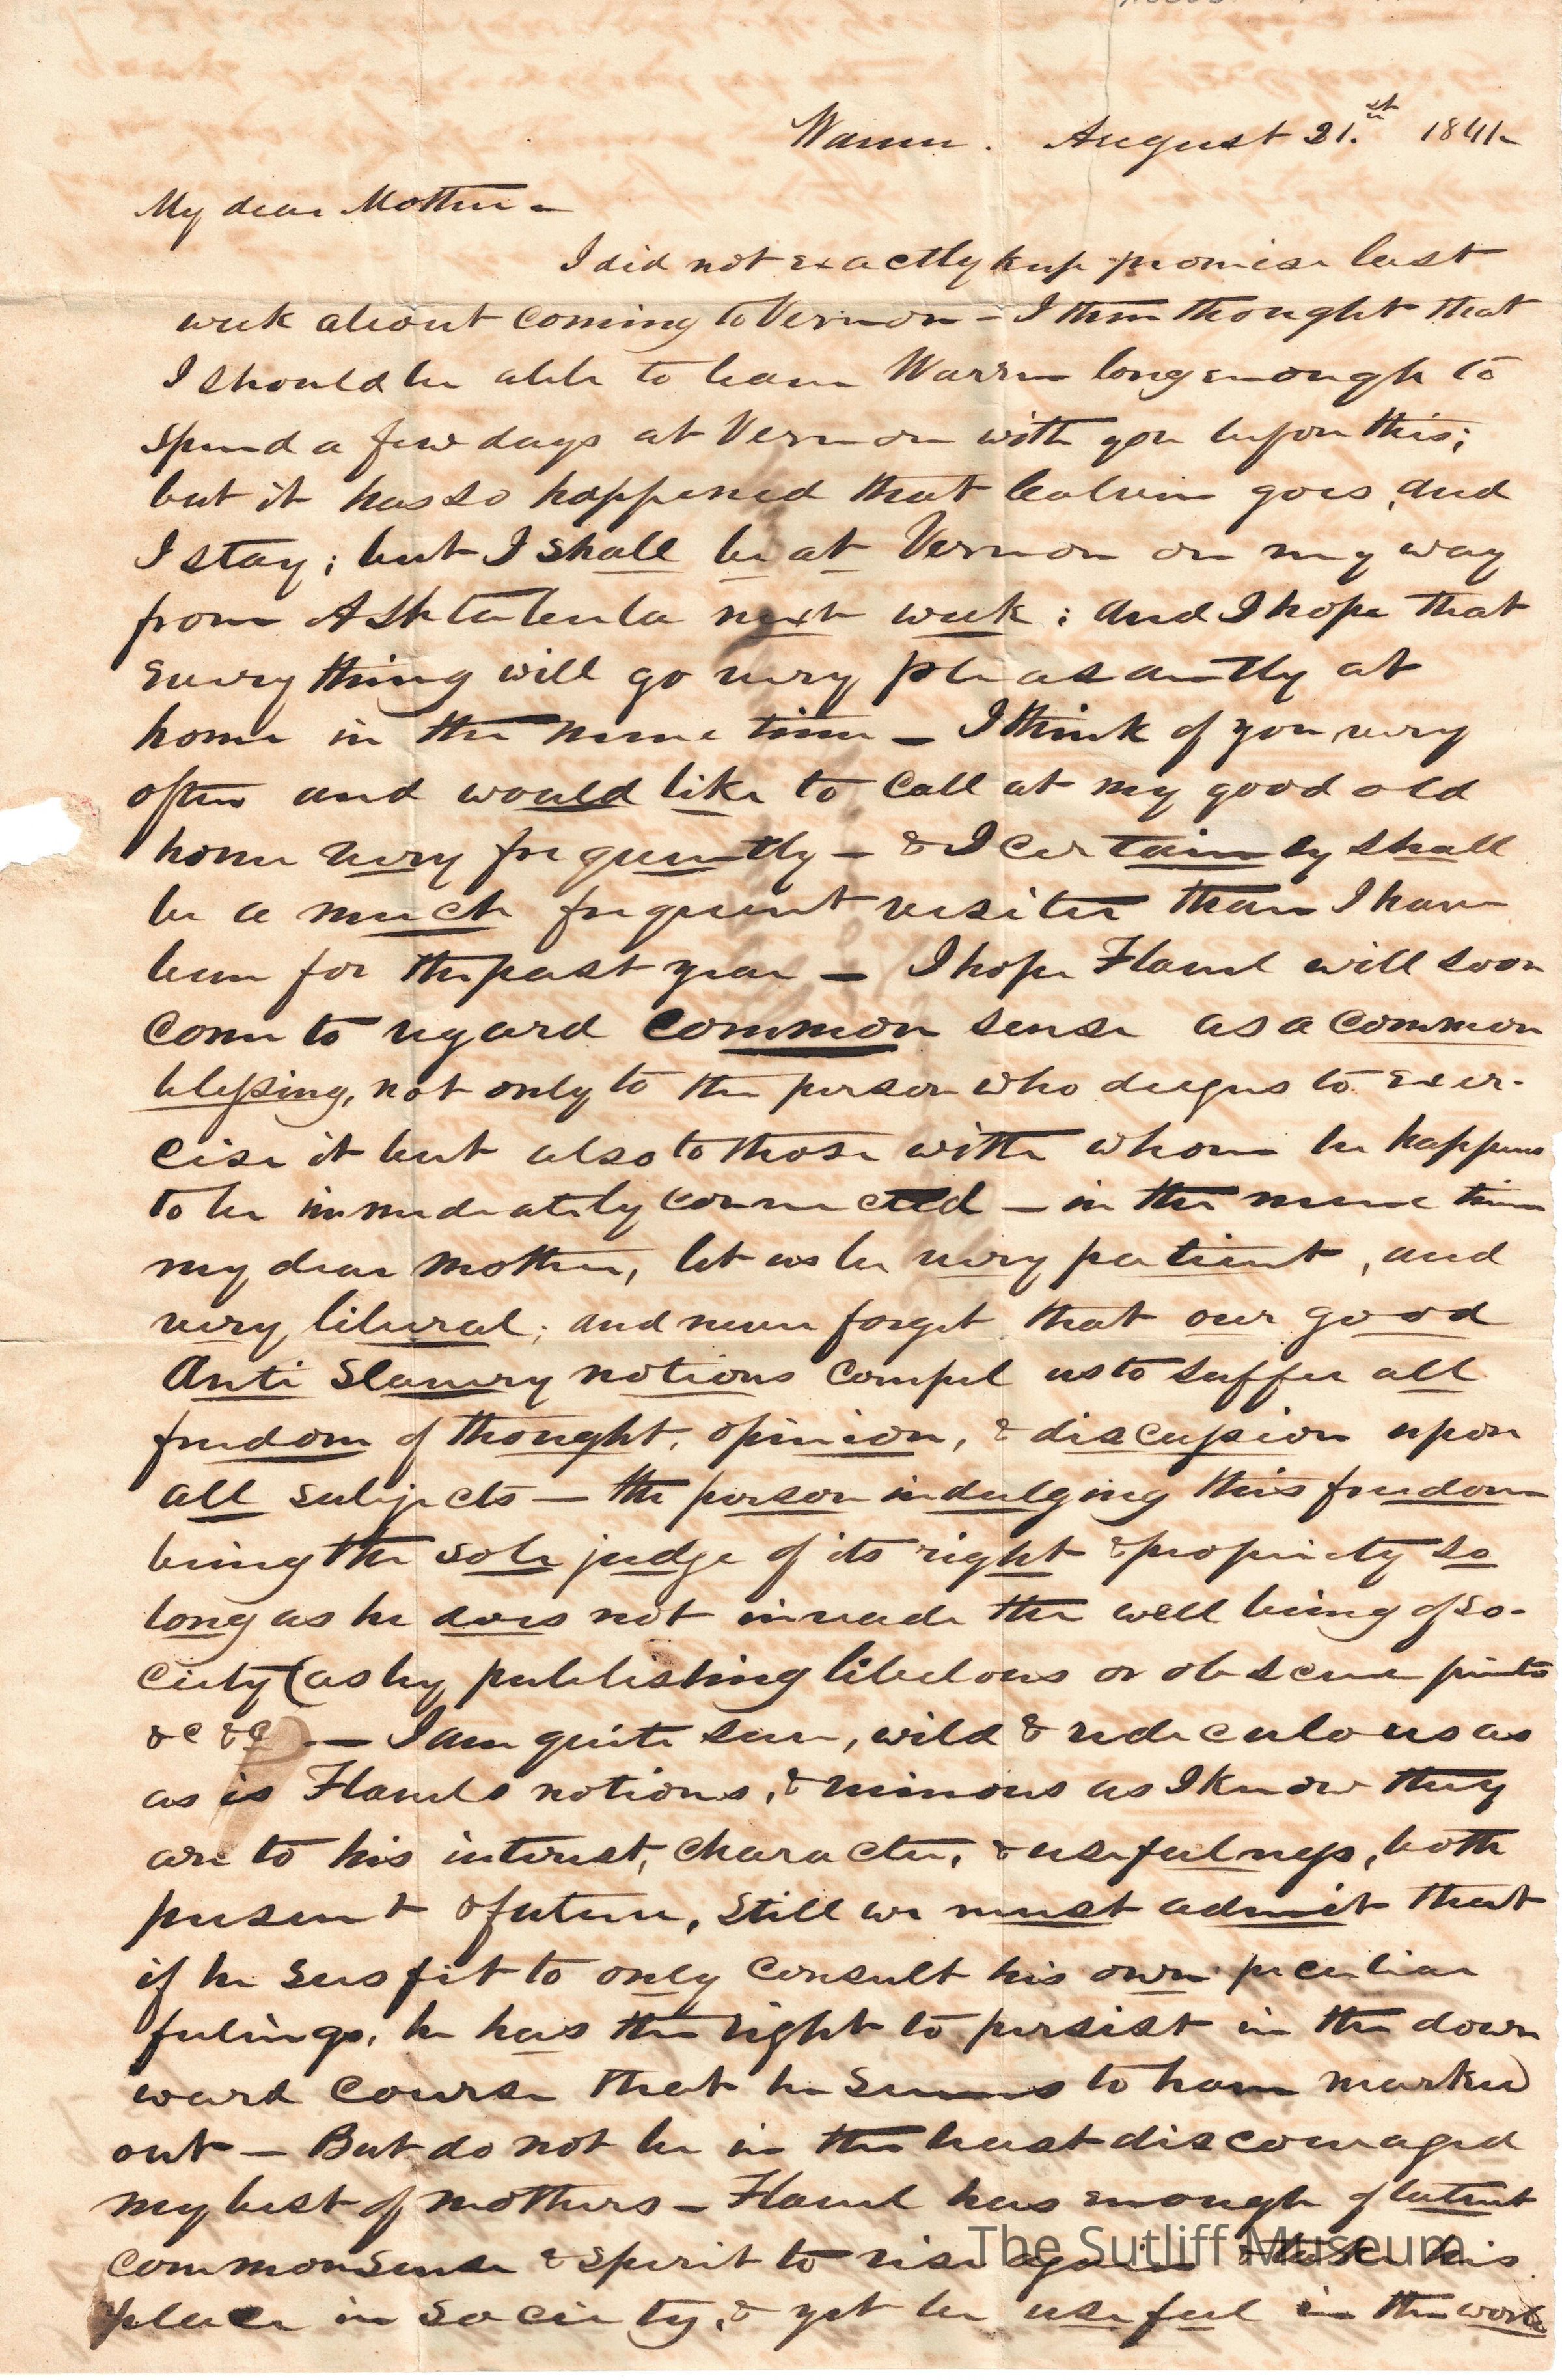 Warren. August 21.st 1841-
My dear Mother -
I did not exactly keep promise last
week about coming to Vernon - I then thought that
I should be able to leave Warren long enough to
spend a few days at Vernon with you before this;
but it has so happened that Calvin goes, and
I stay; but I shall be at Vernon on my way
from Ashtabula next week; and I hope that
every thing will go very pleasantly at
home in the mene time - I think of you very
often and would like to call at my good old
home very frequently - & I certainly shall
be a much frequent visiter than I have
been for the past year - I hope Flavel will soon
come to regard common sense as a common
blessing, not only to the person who deigns to exer-
cise it but also to those with whom he happens
to be immediately connected - in the mene time
my dear mother, let us be very patient, and
very liberal; and never forget that our good
Anti Slavery notions compel us to suffer all
freedom of thought, opinion, & discussion upon
all subjects - the person indulging this freedom
being the sole judge of its right & propriety so
long as he does not invade the well being of so-
ciety (as by publishing libelous or obscene prints
&c &c - I am quite sure, wild & rediculous as
as is Flavels notions, & ruinous as I know they
are to his interest, character, & usefulness, both
present & future, still we must admit that
if he sees fit to only consult his own peculiar
feelings, he has the right to persist in the down
ward course that he seems to have marked
out - But do not be in the least discouraged
my best of mothers - Flavel has enough of latent
common sense & spirit to rise again & take his
place in society, & yet be useful in the work
The Sutliff Museum